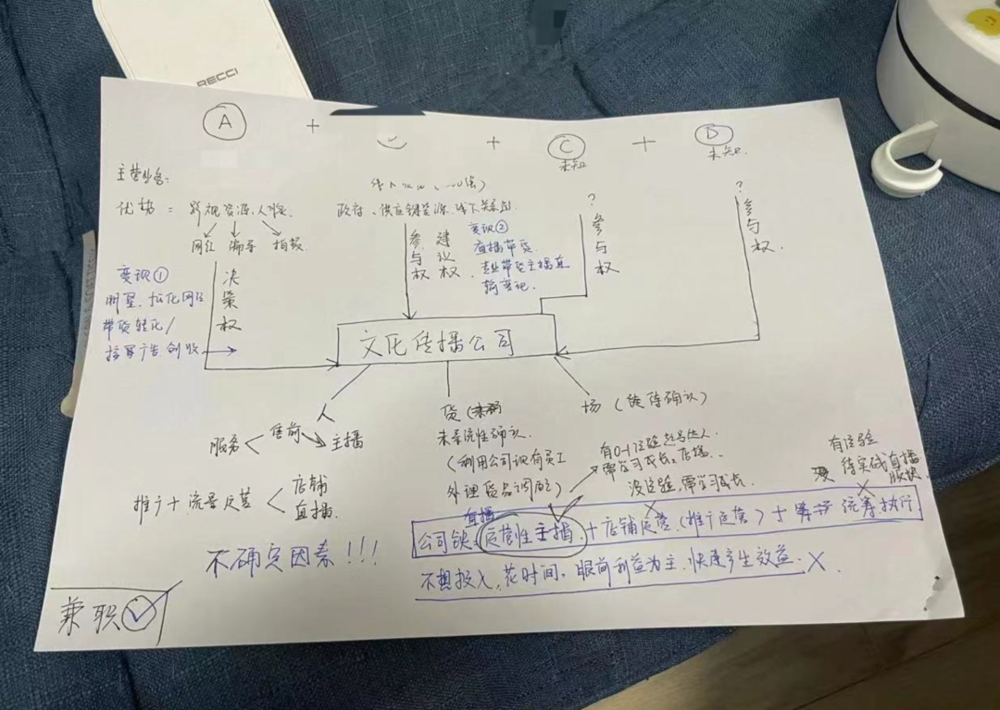 RECCI
A + + C + D
未知 未知
主营业务:
优势 = 影视资源,人脉. 政府、供应链资源,线下关系团 ? ?
网红 编导 拍摄
变现①
明星、孵化网红
带货转化/
接军广告创收
决策权
参与权
建议权
变现②
直播带货
专业带货主播直
播变现.
参与权
参与权
文化传播公司
人
服务 售前 主播
推广+流量运营 店铺
直播.
货(未确
未系统性确认.
(利用公司现有员工
外理货品调配)
场(矩阵确认)
有0-1经验起号达人
需学习成长,店播..
没经验,需学习成长
有经验
没 待实战直播
直播
公司缺:运营性主播 + 店铺运营(推广运营) + 统筹执行
不想投入,花时间,眼前利益为主,快速产生效益. X
不确定因素!!!
兼职